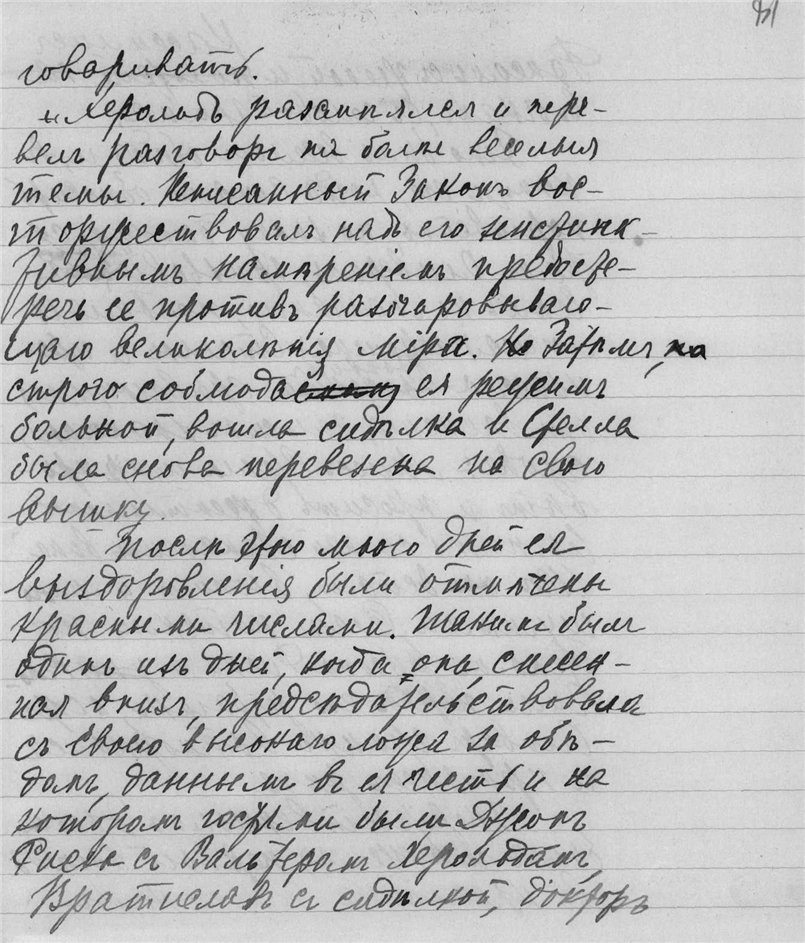 говаривать.
Херольдъ разсмѣялся и пере-
велъ разговоръ на болѣе веселыя
темы. Неписанный Законъ вос-
торжествовалъ надъ его инстинк-
тивнымъ намѣреніемъ предосте-
речь ее противъ разочаровываю-
щаго великолѣпія міра. Затѣмъ, на
строго соблюдая ея режимъ
больной, вошла сидѣлка и Стелла
была снова перевезена на свою
вышку.
Послѣ этого много дней ея
выздоровленія были отмѣчены
красными числами. Такимъ былъ
одинъ изъ дней, когда она, снесен-
ная внизъ, предсѣдательствовала
съ своего высокаго ложа за обѣ-
домъ, даннымъ въ ея честь и на
которомъ гостями были Джонъ
Риска съ Вальтеромъ Херольдомъ,
Вратиславъ съ сидѣлкой, докторъ